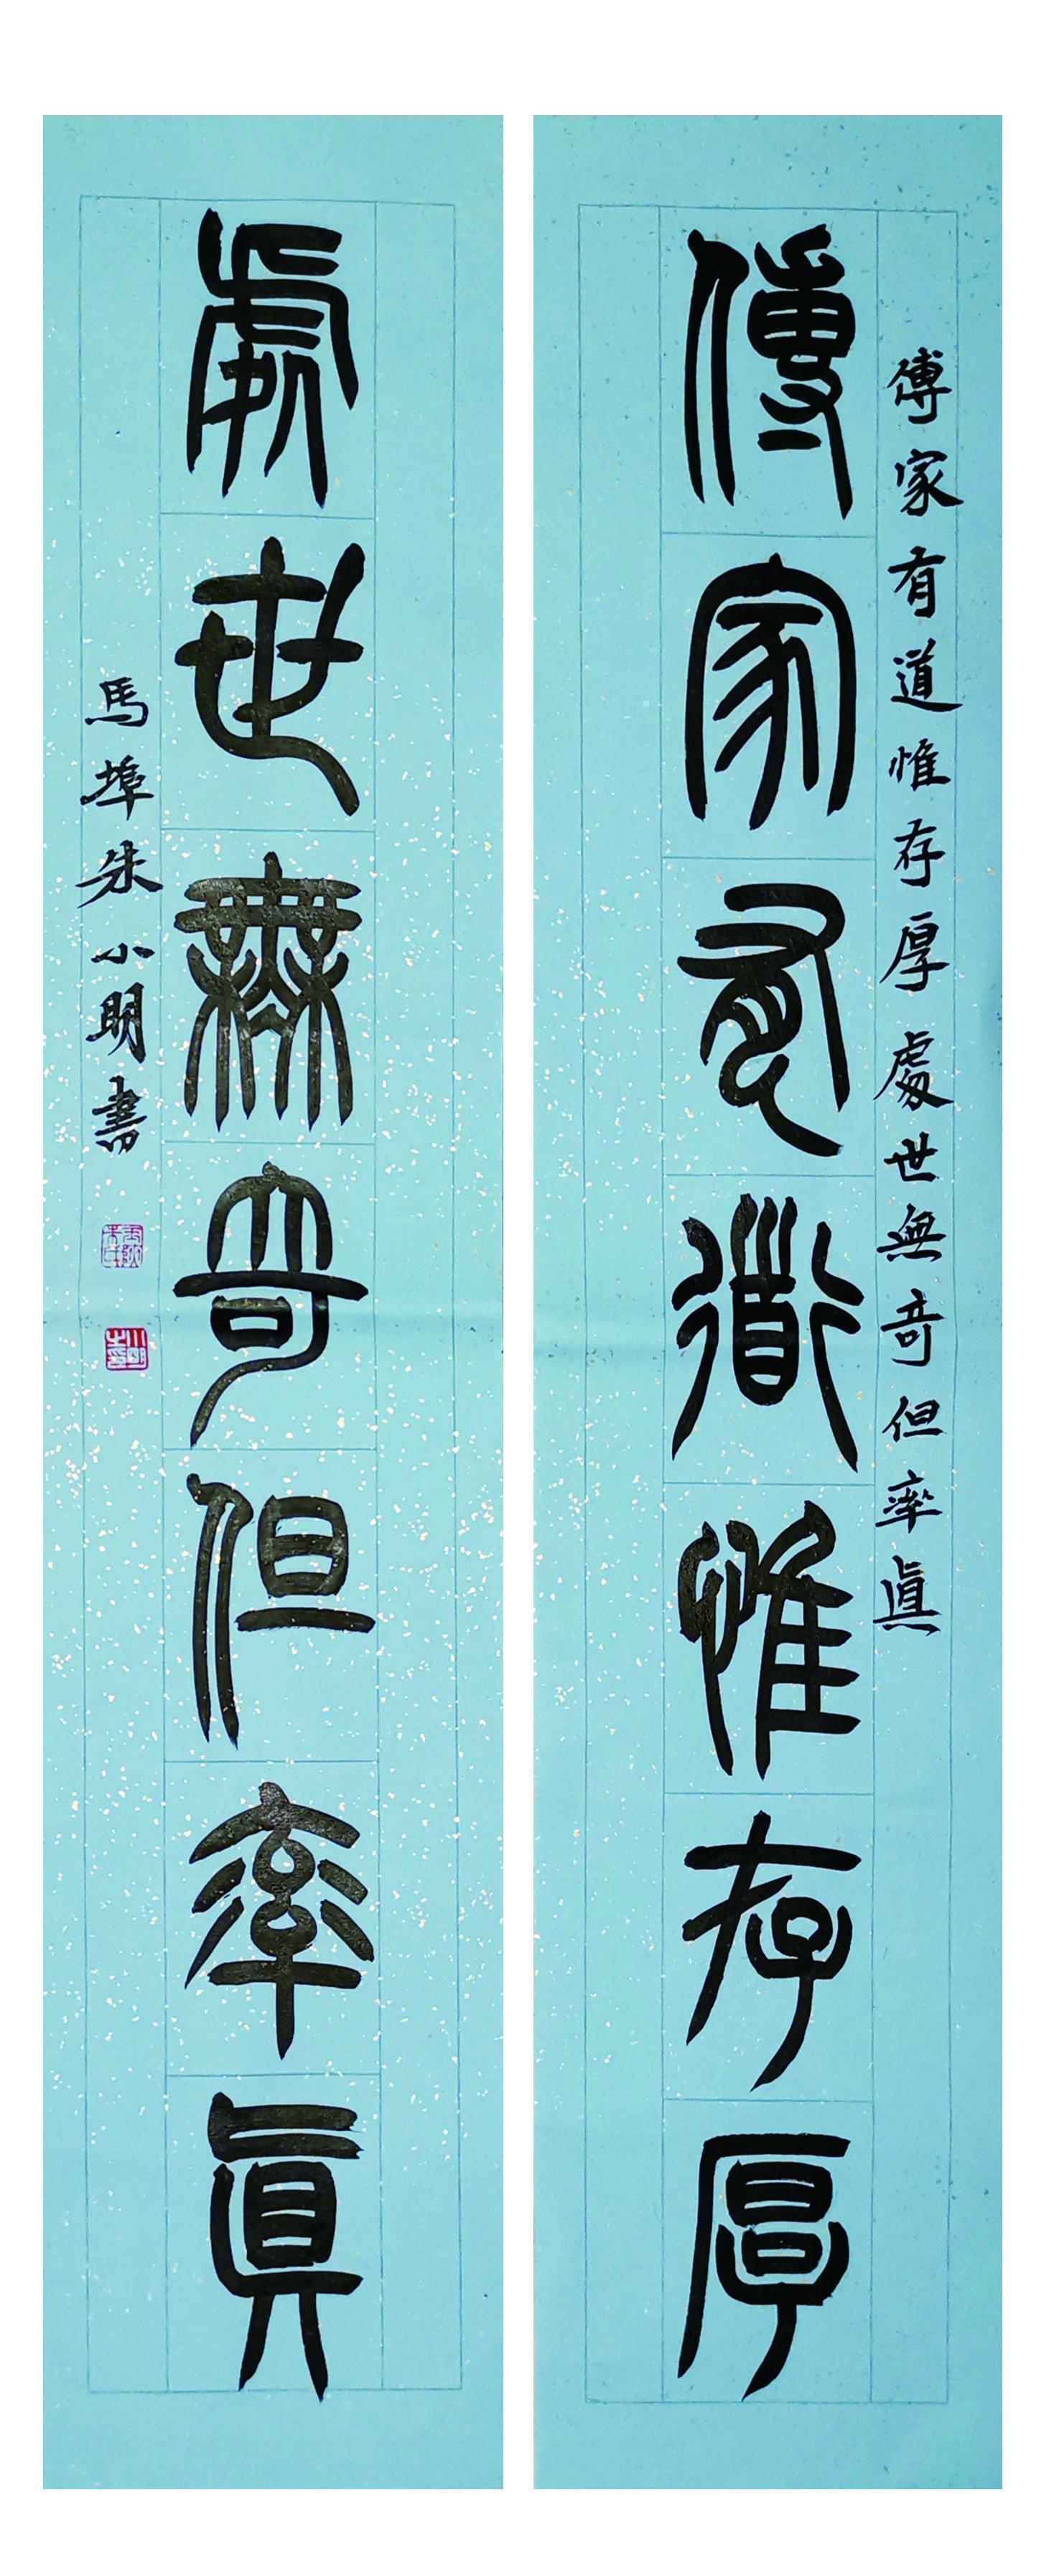 傳家有道惟存厚處世無奇但率真
傳家有道惟存厚
處世無奇但率眞
馬埠朱小明書